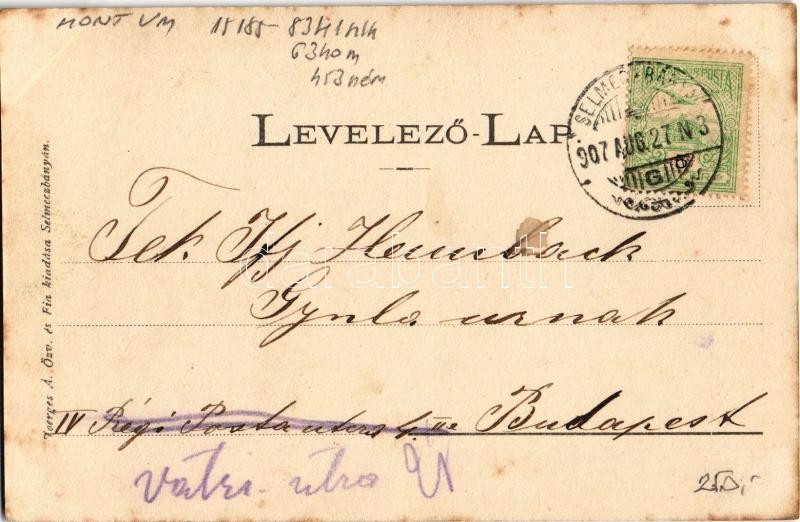 MONT VM 18185- 8341 Mh
6340 m
453 ném
LEVELEZŐ-LAP
POSTA
SELMECZBÁNYA
907 AUG. 27 N 3
G
Joerges A. Özv. és Fia kiadása Selmeczbányán.
Tek. Ifj Hambach
Gyula urnak
IV Régi Posta utcza 4. II e Budapest
darabanth
250,-